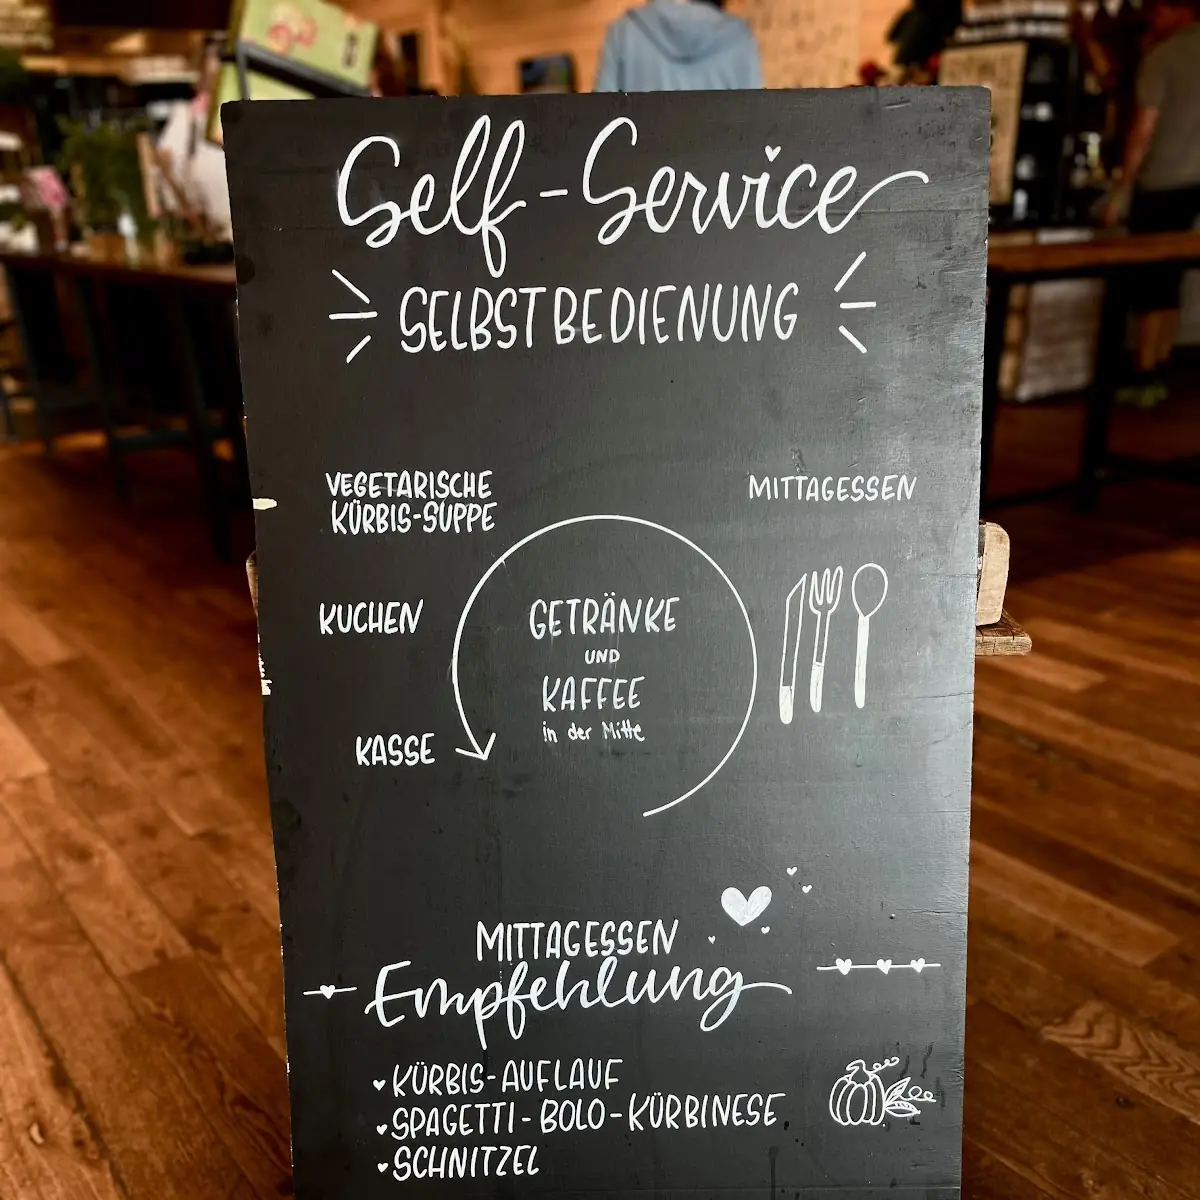 Self-Service
SELBSTBEDIENUNG
VEGETARISCHE
KÜRBIS-SUPPE
MITTAGESSEN
KUCHEN
GETRÄNKE
UND
KAFFEE
in der Mitte
KASSE
MITTAGESSEN
Empfehlung
KÜRBIS-AUFLAUF
SPAGETTI-BOLO-KÜRBINESE
SCHNITZEL